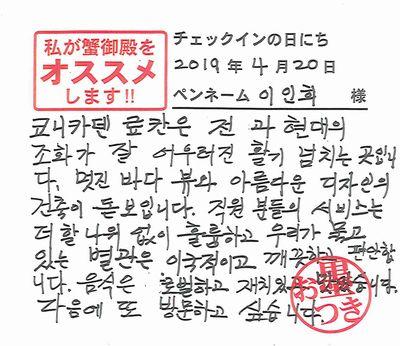 私が蟹御殿を
オススメ
します!!
チェックインの日にち
2019年4月20日
ペンネーム 이인화 様
코니카덴 료칸은 전 과 현대의
조화가 잘 어우러진 활기 넘치는 곳입니
다. 멋진 바다 뷰와 아름다운 디자인의
건축이 돋보입니다. 직원 분들의 서비스는
더 할 나위 없이 훌륭하고 우리가 묵고
있는 별관은 이국적이고 깨끗하고 편안합
니다. 음식은 재치있는 맛있습니다.
다음에 또 방문하고 싶습니다.
お墨つき